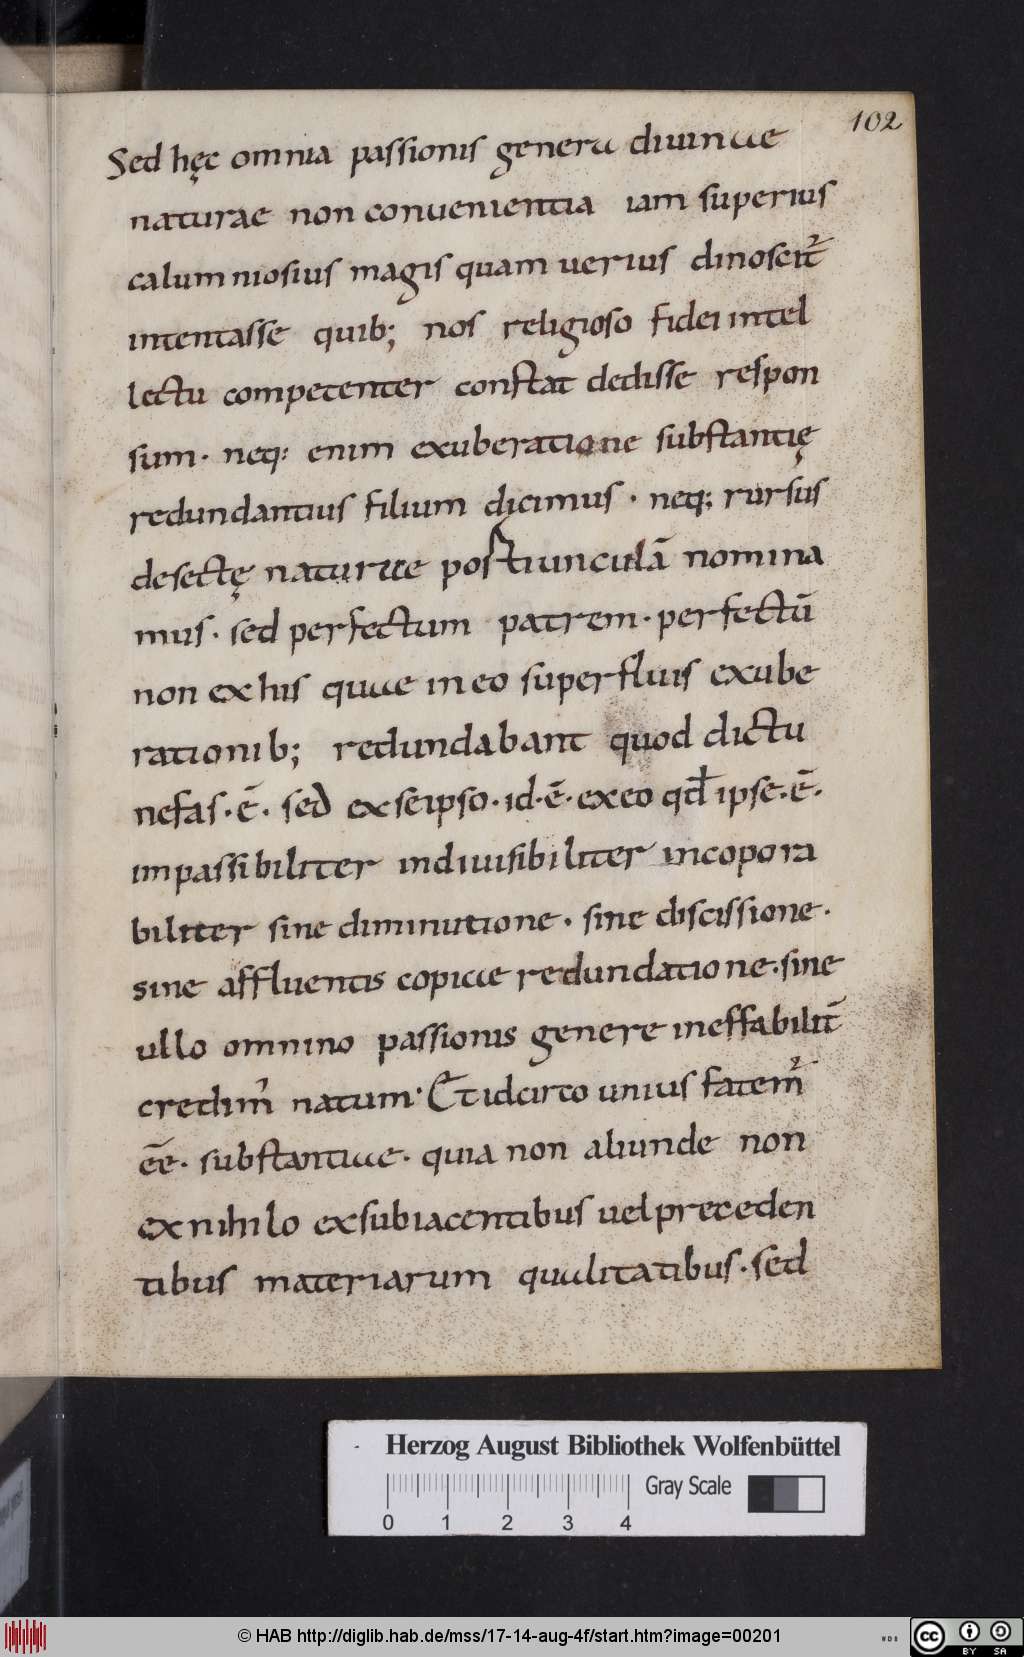 102
Sed hęc omnia passionis genera diuinae
naturae non conuenientia iam superius
calumniosius magis quam uerius dinoscit᷑
intentasse quib; nos religioso fidei intel
lectu competenter constat dedisse respon
sum· neq: enim exuberatione substantię
redundantius filium dicimus · neq; rursus
desectę naturae postiunculā nomina
mus · sed perfectum patrem · perfectū
non ex his quae in eo superfluis exube
rationib; redundabant quod dictu
nefas · ē · sed ex seipso · id · ē · ex eo qđ ipse · ē ·
impassibiliter indiuisibiliter incopora
biliter sine diminutione · sine discissione ·
sine affluentis copiae redundatione · sine
ullo omnino passionis genere ineffabilit̄
credim᾽ natum · Et idcirco unius fatem᷑
ēe · substantiae · quia non aliunde non
ex nihilo ex subiacentibus uel preceden
tibus materiarum qualitatibus · sed
Herzog August Bibliothek Wolfenbüttel
Gray Scale
0 1 2 3 4
© HAB http://diglib.hab.de/mss/17-14-aug-4f/start.htm?image=00201
WDB
cc BY SA